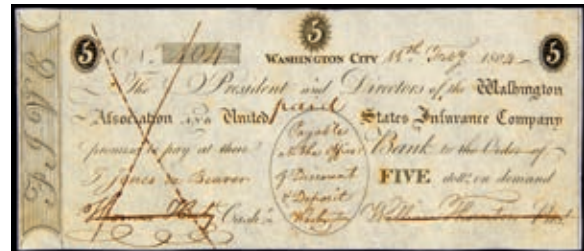 5
5 No. 104 WASHINGTON CITY 5
The President and Directors of the Washington
Association AND United States Insurance Company
paid
promise to pay at their Bank to the Order of
Payable
at the Office
of Discount
& Deposit
Washington
T Jones or Bearer FIVE doll.s on demand
Cash.r William Thornton Pres.t